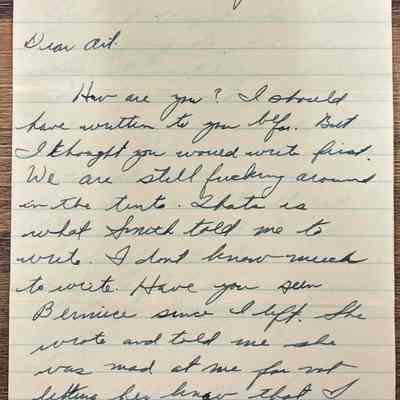 Dear Art.
How are you? I should
have written to you befor. But
I thought you would write first.
We are still fucking around
in the tents. Thats is
what Smith told me to
write. I dont know much
to write. Have you seen
Berniece since I left. She
wrote and told me she
was mad at me for not
letting her know that I